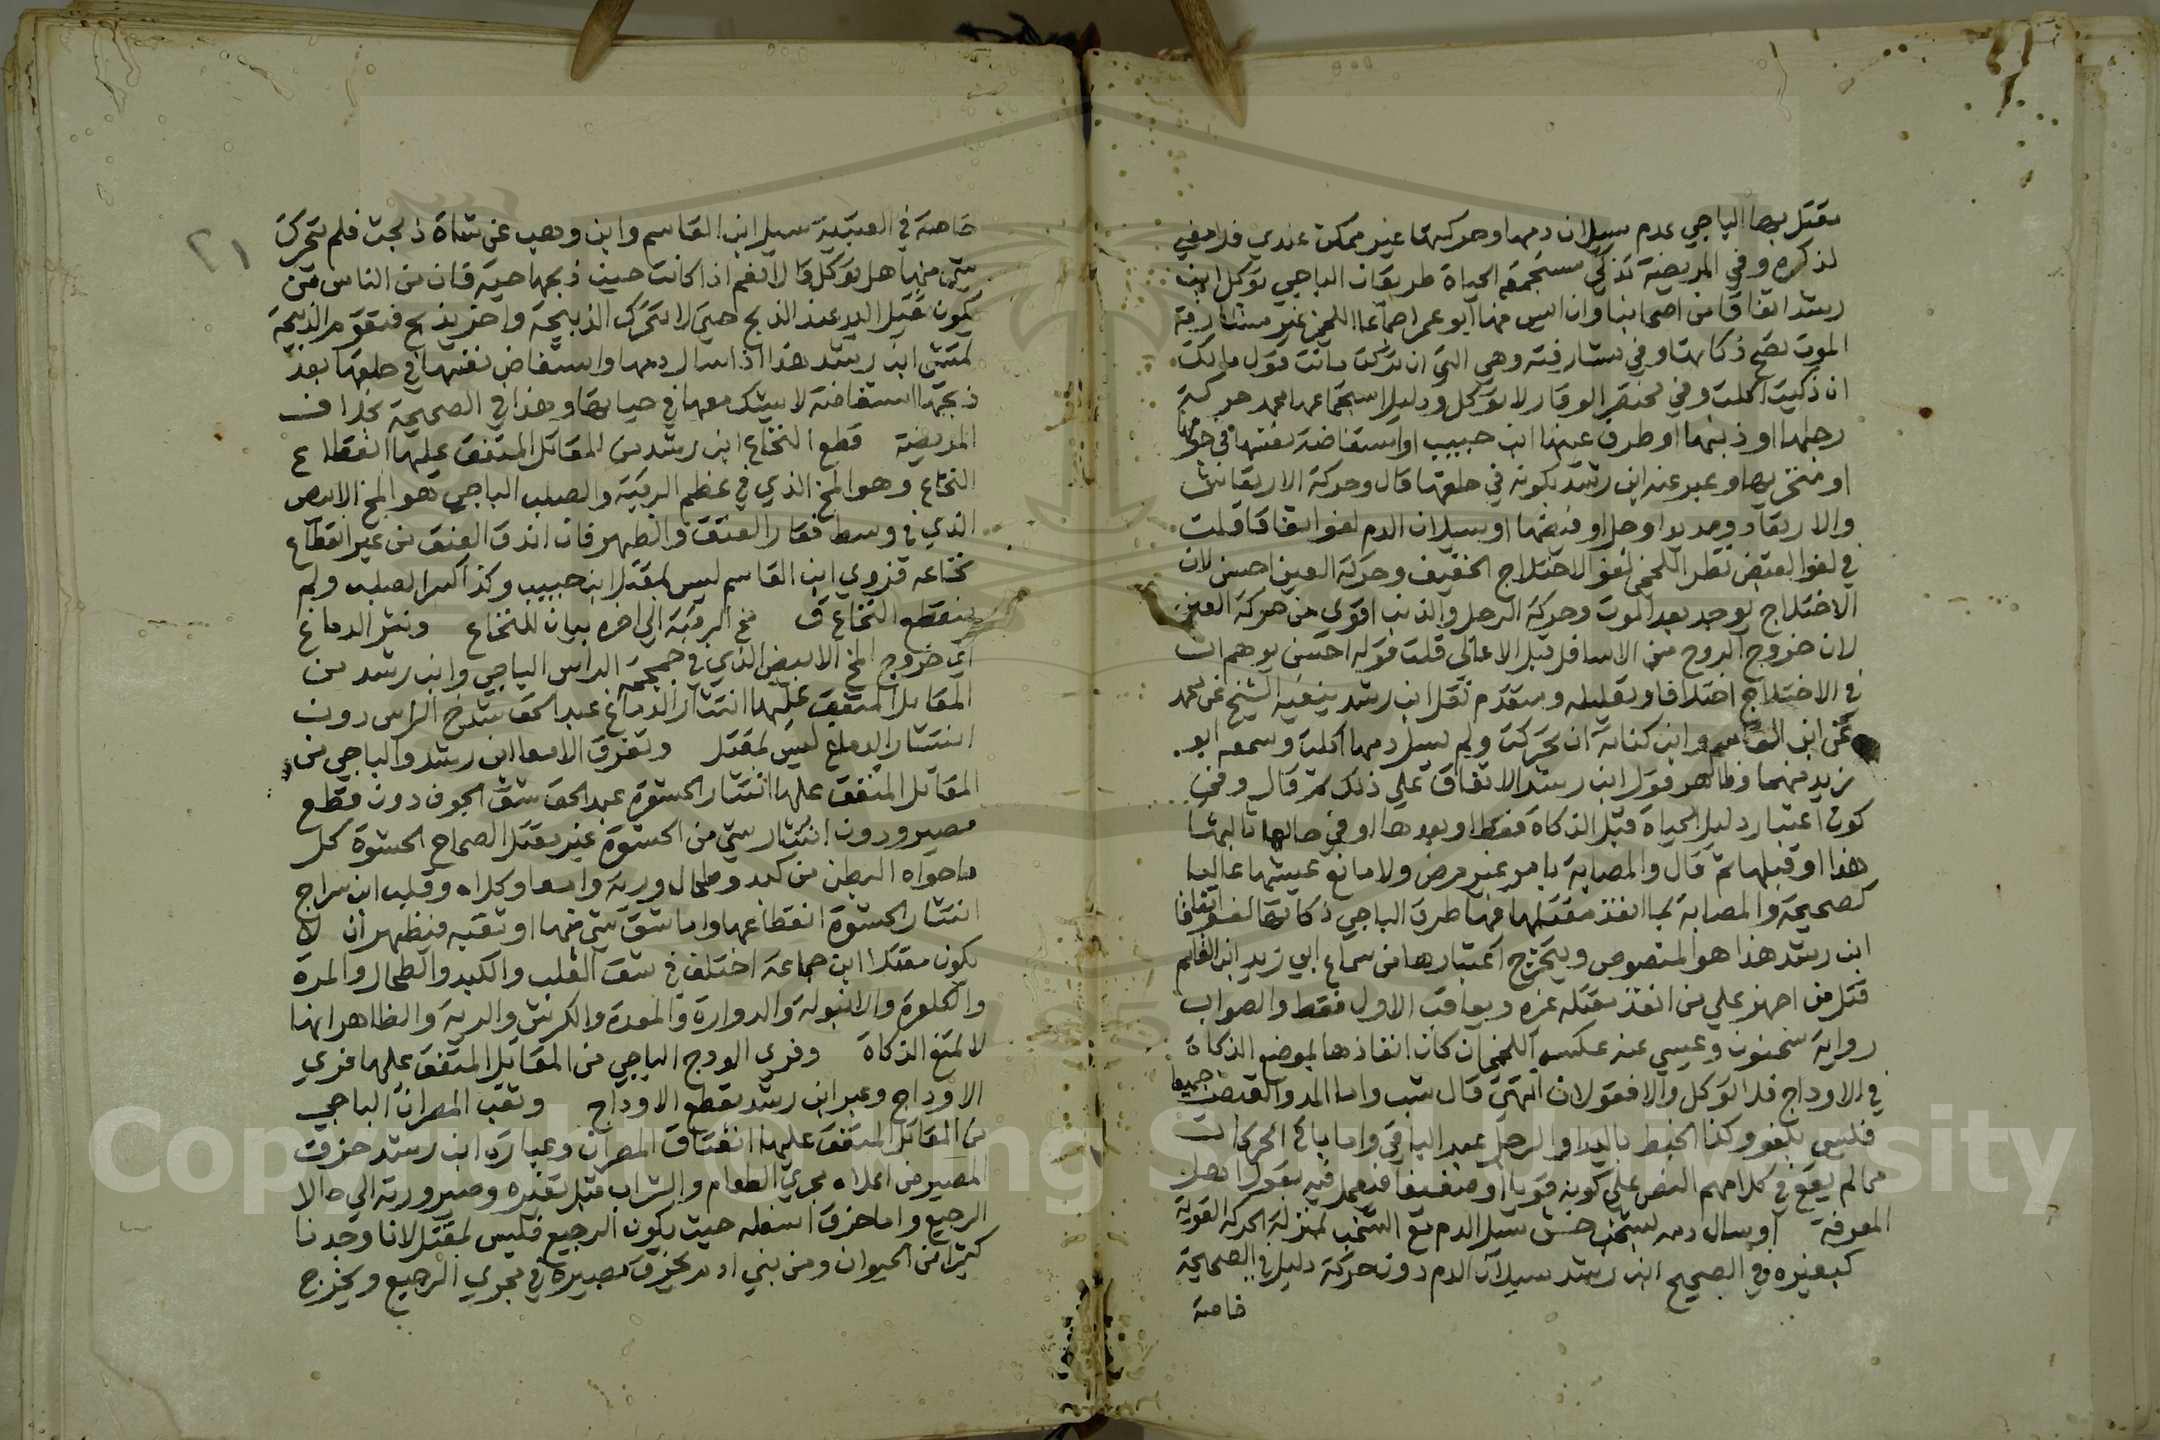 مقتل بها الباجي عدم سيلان دمها وحركتها غير ممكن عندي فلا معني
لذكره وفي المريضة تذكي مستجمعه الحياة طريقان الباجي توكل ابن
رشد اتفاقا من اصحابنا وان ايس منها ابو عمر اجماعا اللخمي غير مشارفة
الموت تصح ذكاتها وفي مشارفته وهي التي ان تركت ماتت قول مالك
ان ذكيت اكلت وفي مختصر الوقار لا توكل ودليل استجماعها محمد حركة
رجلها او ذنبها او طرف عينها ابن حبيب او استفاضة نفسها في جوفها
او منخريها وعبر عنه ابن رشد بكونه في حلقها قال وحركة الارتعاش
والارتعاد ومد يد او رجل او قبضها او سيلان الدم لغو اتفاقا قلت
في لغو القبض نظر اللخمي لغو الاختلاج الخفيف وحركة العين احسن لان
الاختلاج يوجد بعد الموت وحركة الرجل والذنب اقوي من حركة العين
لان خروج الروح من الاسافل قبل الاعالي قلت قوله احسن يوهم ان
في الاختلاج اختلافا وتعليله وستقدم نقل ابن رشد ينفيه الشيخ عن محمد
عن ابن القاسم وابن كنانة ان تحركت ولم يسل دمها اكلت وسمعه ابو
زيد منهما وظاهر قول ابن رشد الاتفاق علي ذلك ثم قال وفي
كون اعتبار دليل الحياة قبل الذكاة فقط او بعدها او في حالها ثالثها
هذا او قبلها ثم قال والمصابة بامر غير مرض ولا مانع عيشها غالبا
كصحيحة والمصابة بما انفذ مقتلها فيها طرق الباجي ذكاتها لغو اتفاقا
ابن رشد هذا هو المنصوص ويتخرج اعتبارها من سماع ابي زيد ابن القاسم
قتل من اجهز علي من انفذ مقتله غيره ويعاقب الاول فقط والصواب
رواية سحنون وعيسي عنه عكسه اللخمي ان كان انفاذها بموضع الذكاة
في الاوداج فلا توكل والا فقولان انتهي قال شب واما المد والقبض جميعا
فليس بلغو وكذا الخبط باليد او الرجل عبد الباقي واما باقي الحركات
مما لم يقع في كلامهم النص علي كونه قويا او ضعيفا فيعمل فيه بقول اهل
المعرفة او سال دمه بشخب حسن سيل الدم مع الشخب بمنزلة الحركة القوية
كبغيره في الصحيح ابن رشد سيلان الدم دون حركة دليل في الصحيحة
خاصة
٢١
خاصة في العتبية سيل ابن القاسم وابن وهب عن شاة ذبحت فلم يتحرك
شي منها هل توكل قالا نعم اذا كانت حين ذبحها حية فان من الناس من
يكون ثقيل اليد عند الذبح حتي لا تتحرك الذبيحة واخر يذبح فتقوم الذبيحة
تمشي ابن رشد هذا اذا سال دمها واستفاض نفسها في حلقها بعد
ذبحها استفاضة لا يشك معها في حياتها وهذا في الصحيحة بخلاف
المريضة قطع النخاع ابن رشد من المقاتل المتفق عليها انقطاع
النخاع وهو المخ الذي في عظم الرقبة والصلب الباجي هو المخ الابيض
الذي في وسط فقار العنق والظهر فان اندق العنق من غير انقطاع
نخاعه فروي ابن القاسم ليس بمقتل ابن حبيب وكذا كسر الصلب ولم
ينقطع النخاع ق مخ الرقبة الي اخره بيان للنخاع ونثر الدماغ
اي خروج المخ الابيض الذي في جمجمة الراس الباجي وابن رشد من
المقاتل المتفق عليها انتثار الدماغ عبد الحق شدخ الراس دون
انتثار الدماغ ليس بمقتل وتفرق الامعا ابن رشد والباجي من
المقاتل المتفق عليها انتثار الحشوة عبد الحق شق الجوف دون قطع
مصير ودون انتثار شي من الحشوة غير مقتل الصحاح الحشوة كل
ما حواه البطن من كبد وطحال ورية وامعا وكلاه وقلب ابن سراج
انتثار الحشوة انقطاعها واما شق شي منها او ثقبه فيظهر ان لا
يكون مقتلا ابن جماعة اختلف في شق القلب والكبد والطحال والمرة
والكلوة والانبولة والدوارة والمعدة والكرش والرية والظاهر انها
لا تمنع الذكاة وفري الودج الباجي من المقاتل المتفق عليها فري
الاوداج وعبر ابن رشد بقطع الاوداج وثقب المصران الباجي
من المقاتل المتفق عليها انفتاق المصران وعبارة ابن رشد خرق
المصير من اعلاه مجري الطعام والشراب قبل تغيره وصيرورته الي حالا
الرجيع واما خرق اسفله حيث يكون الرجيع فليس بمقتل لانا وجدنا
كثيرا من الحيوان ومن بني ادم يخرق مصيره في مجري الرجيع ويخرج
Copyright © King Saud University